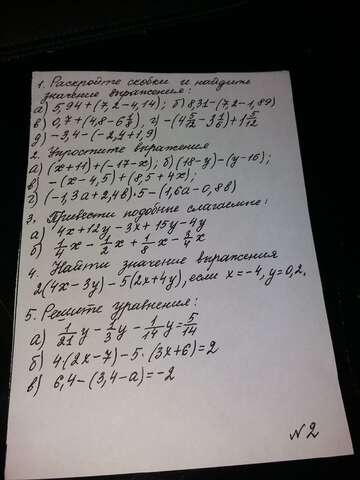 1. Раскройте скобки и найдите
значение выражения:
а) 5,94+(7,2-4,14); б) 8,31-(7,2-1,89)
в) 0,7+(4,8-6,7), г) -(4 5/12-3 1/6)+1 5/12
д) -3,4-(-2,4+1,9)
2. Упростите выражения
а) (x+11)+(-17-x); б) (18-y)-(y-15);
в) -(x-4,5)+(8,5+4x);
г) (-1,3a+2,4в)·5-(1,6a-0,8в)
3. Привести подобные слагаемые:
а) 4x+12y-3x+15y-4y
б) 1/4 x-1/2 x+1/8 x-3/4 x
4. Найти значение выражения
2(4x-3y)-5(2x+4y), если x=-4, y=0,2.
5. Решите уравнения:
а) 1/21 y-2/3 y-1/14 y=5/14
б) 4(2x-7)-5·(3x+6)=2
в) 6,4-(3,4-a)=-2
N2